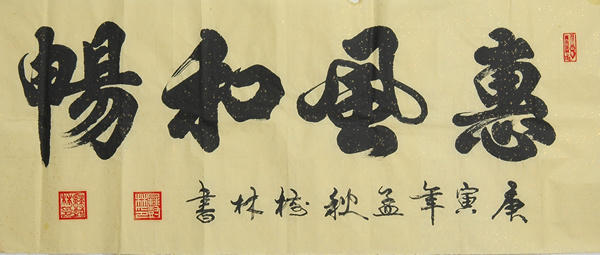 惠風和暢
庚寅年孟秋樹林書